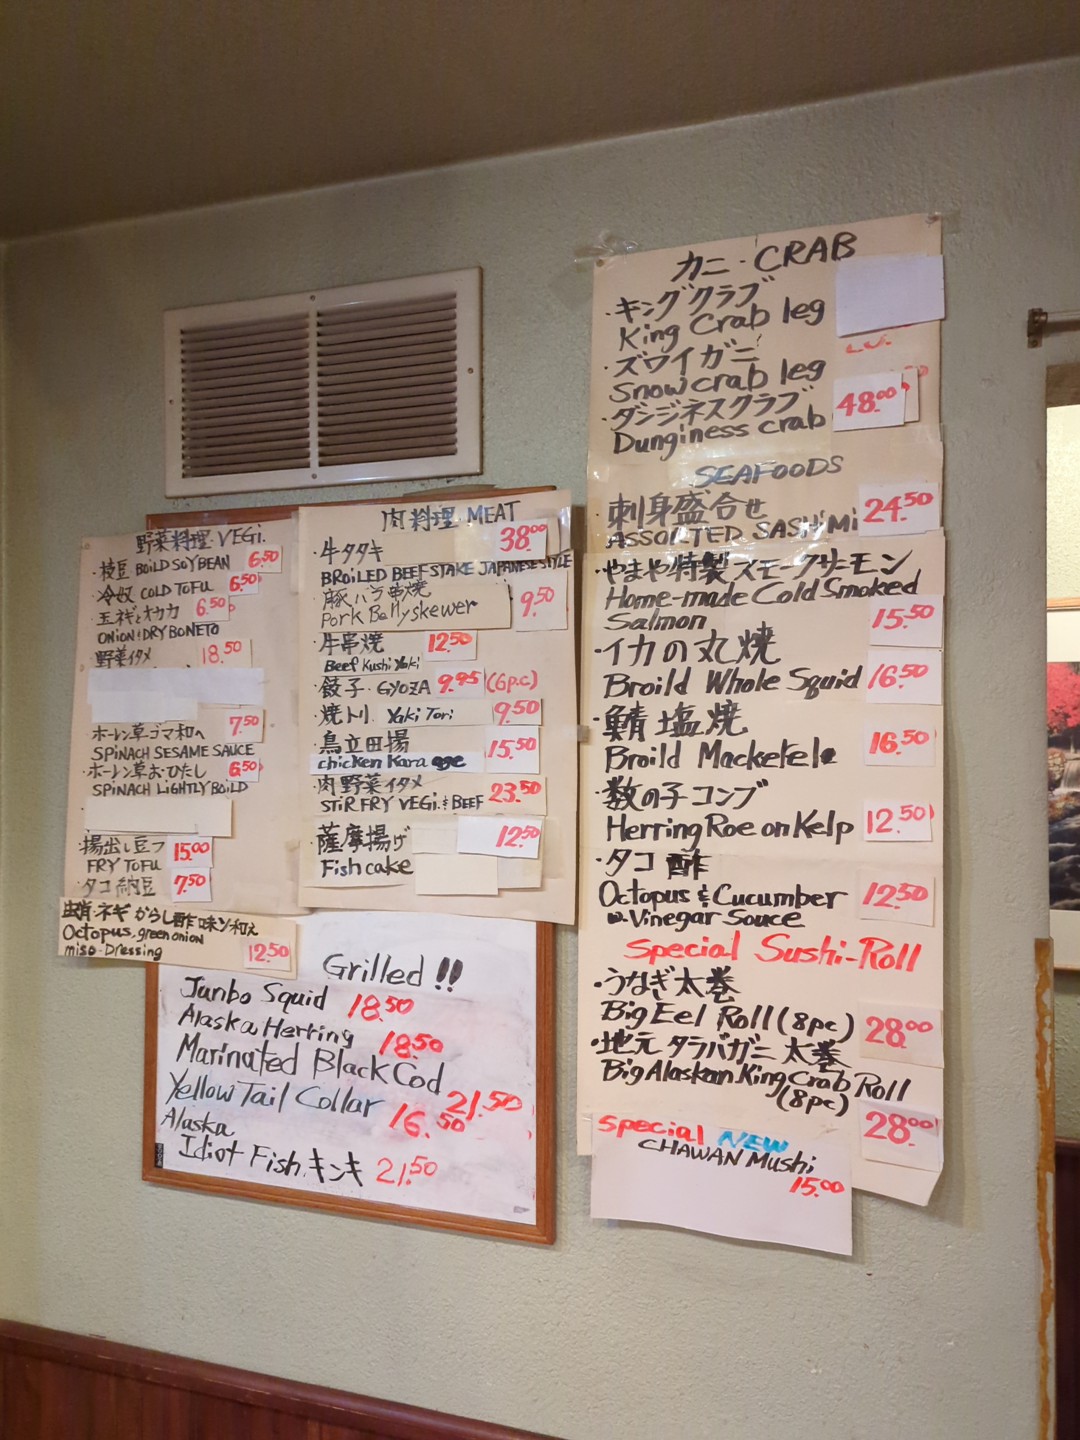 野菜料理 VEGi.
・枝豆 BOiLD SOYBEAN 6.50
・冷奴 COLD TOFU 6.50
・玉ネギとオカカ 6.50
ONION & DRY BONETO
・野菜イタメ 18.50
・ホーレン草ゴマ和へ 7.50
SPiNACH SESAME SAUCE
・ホーレン草おひたし 6.50
SPiNACH LiGHTLY BOiLD
・揚出し豆フ 15.00
FRY TOFU
・タコ納豆 7.50
ネギからし酢味ソ和え
Octopus, green onion
miso-Dressing 12.50
肉料理 MEAT
・牛タタキ 38.00
BROiLED BEEF STAKE JAPANESE STYLE
豚バラ串焼 9.50
Pork Bally skewer
・牛串焼 12.50
Beef Kushi Yaki
・餃子・GYOZA 9.95 (6p.c)
・焼トリ Yaki Tori 9.50
・鳥立田揚 15.50
chicken Kara age
・肉野菜イタメ 23.50
STiR FRY VEGi. & BEEF
・薩摩揚げ 12.50
Fish cake
Grilled !!
Junbo Squid 18.50
Alaska Herring 18.50
Marinated Black Cod 21.50
Yellow Tail Collar 16.50
Alaska
Idiot Fish キンキ 21.50
カニ・CRAB
・キングクラブ
King Crab leg
・ズワイガニ
Snow crab leg
・ダンジネスクラブ 48.00
Dunginess crab
SEAFOODS
・刺身盛合せ 24.50
ASSORTED SASHiMi
・やまや特製スモークサーモン
Home-made Cold Smoked
Salmon 15.50
・イカの丸焼
Broild Whole Squid 16.50
・鯖塩焼
Broild Mackekel 16.50
・数の子コンブ
Herring Roe on Kelp 12.50
・タコ酢
Octopus & Cucumber 12.50
w. Vinegar Souce
Special Sushi-Roll
・うなぎ太巻
Big Eel Roll (8pc) 28.00
・地元タラバガニ太巻
Big Alaskan King Crab Roll
(8pc) 28.00
special NEW
CHAWAN Mushi
15.00